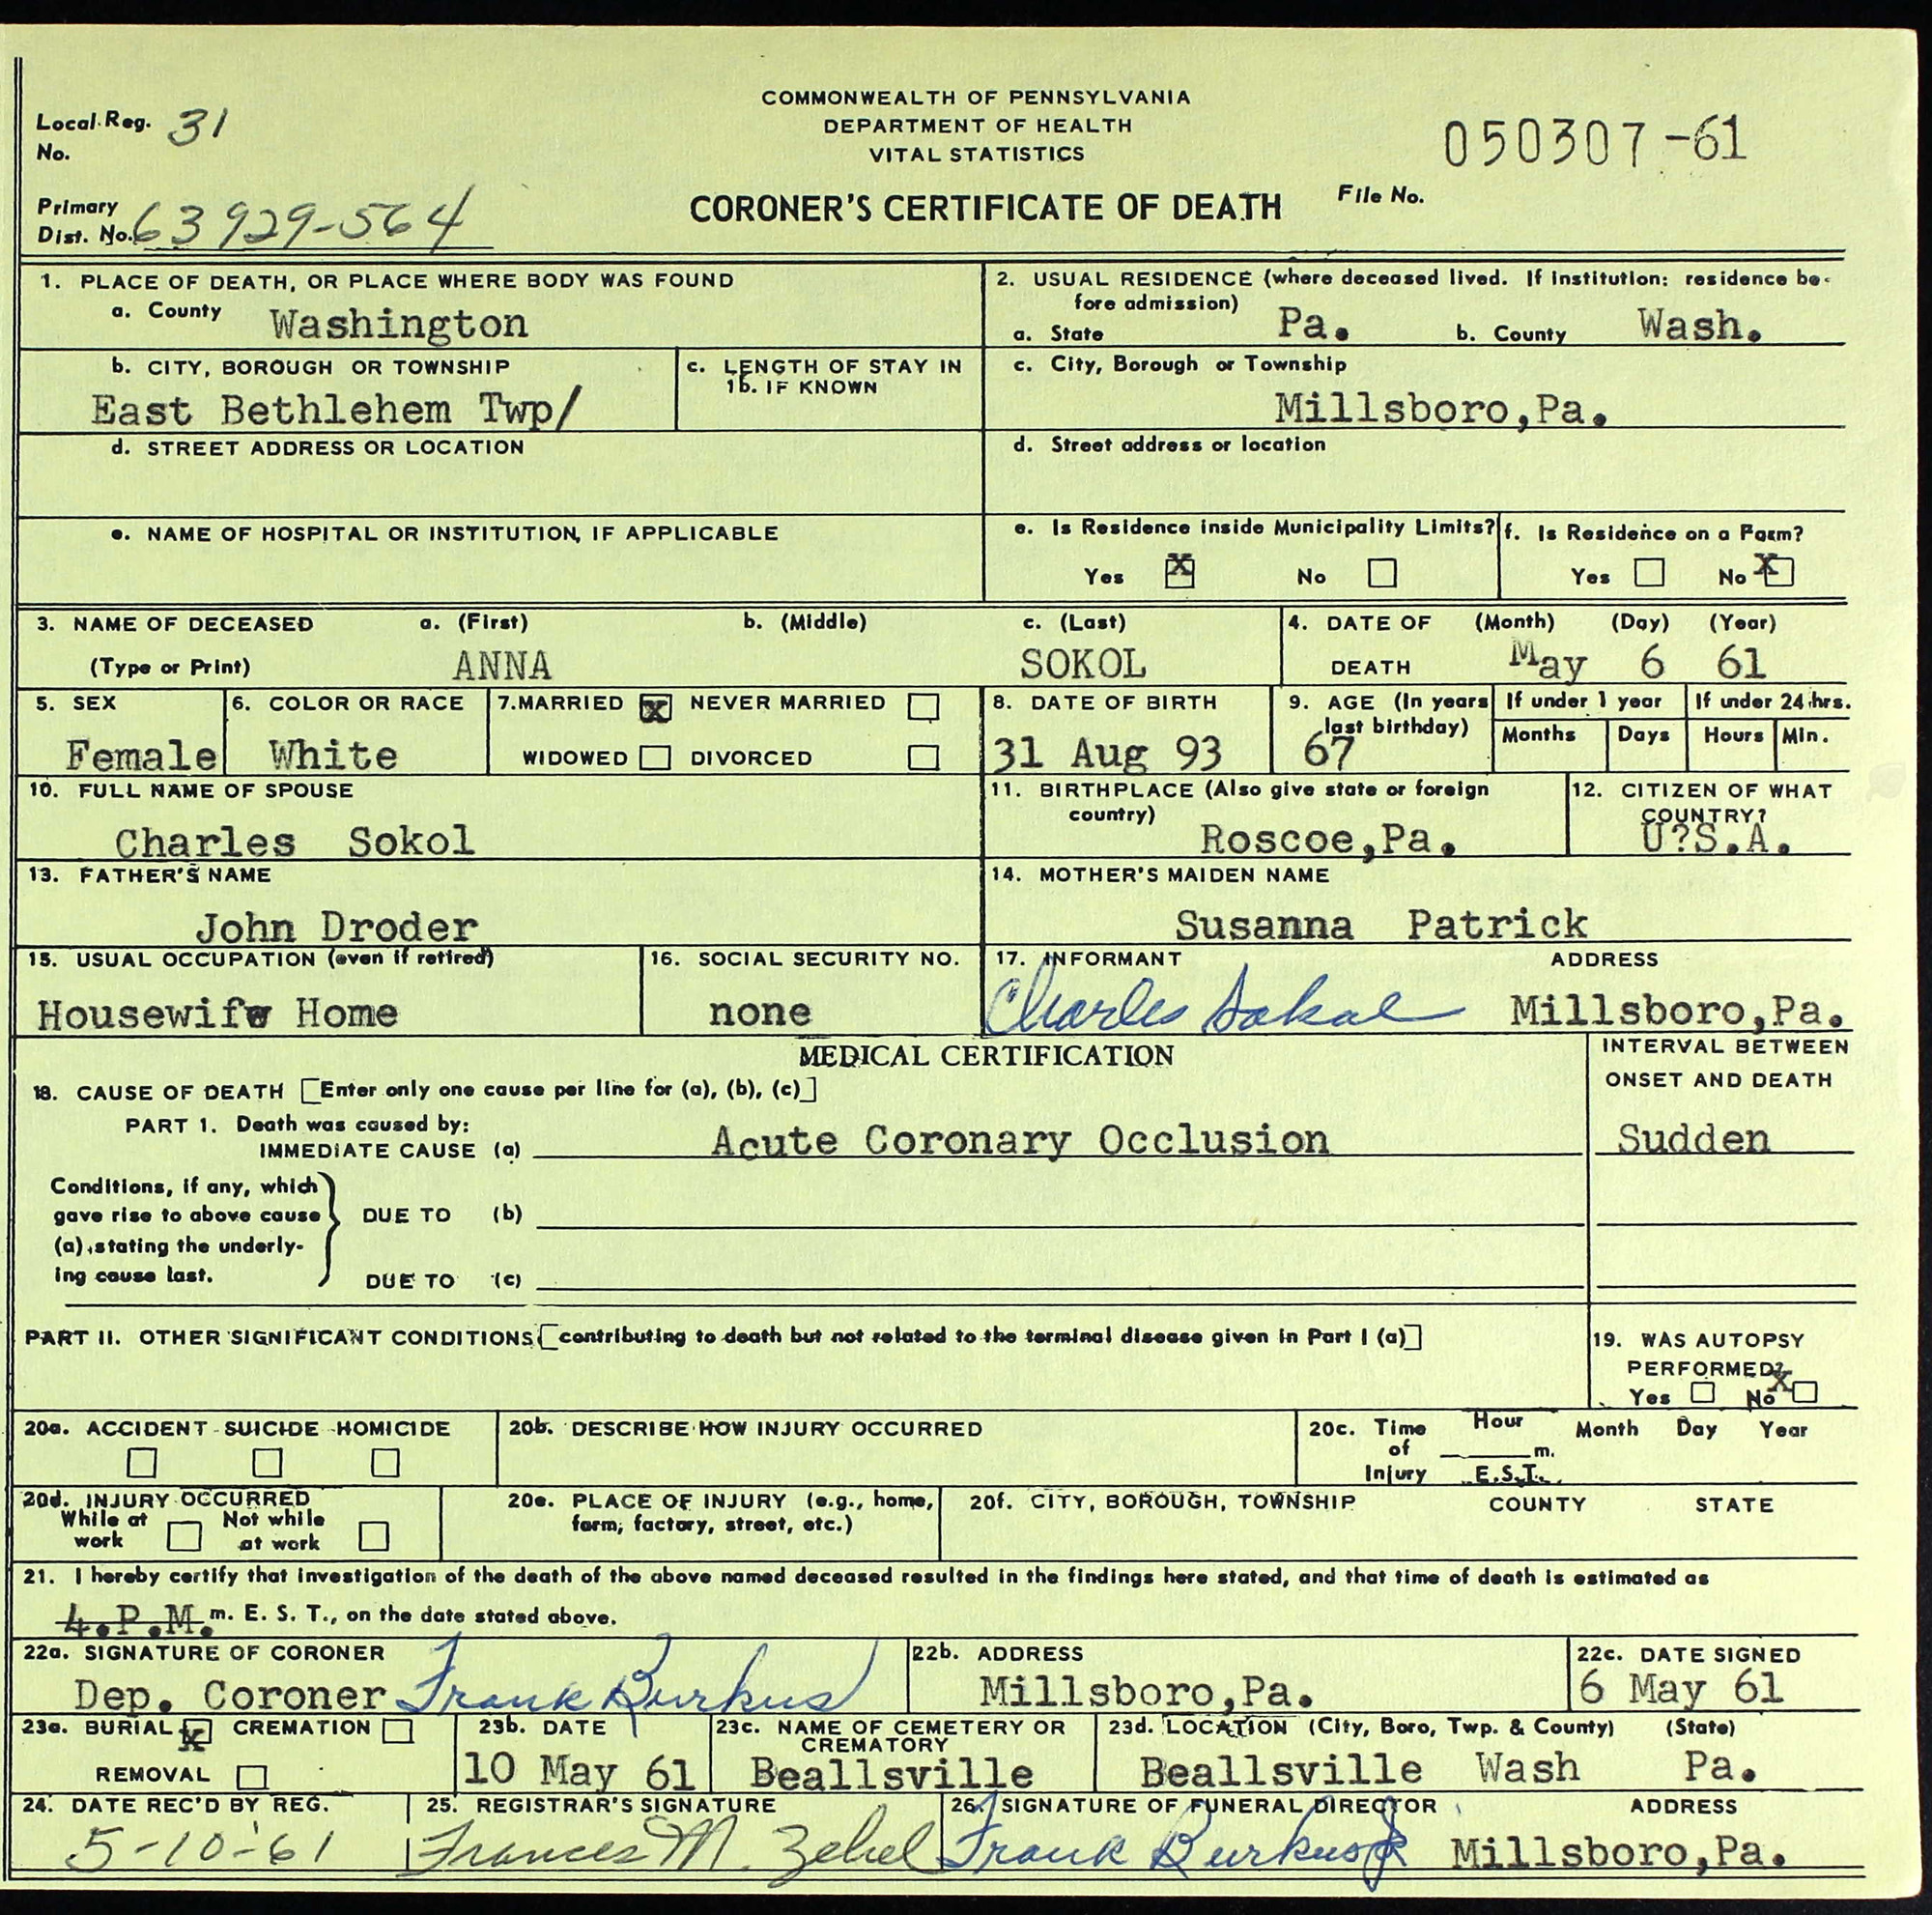 COMMONWEALTH OF PENNSYLVANIA
DEPARTMENT OF HEALTH
VITAL STATISTICS
CORONER'S CERTIFICATE OF DEATH
Local Reg. No. 31
Primary Dist. No. 63929-564
File No. 050307-61
1. PLACE OF DEATH, OR PLACE WHERE BODY WAS FOUND
a. County Washington
b. CITY, BOROUGH OR TOWNSHIP
East Bethlehem Twp/
c. LENGTH OF STAY IN 1b. IF KNOWN
d. STREET ADDRESS OR LOCATION
e. NAME OF HOSPITAL OR INSTITUTION, IF APPLICABLE
2. USUAL RESIDENCE (where deceased lived. If institution: residence be-
fore admission)
a. State Pa. b. County Wash.
c. City, Borough or Township
Millsboro,Pa.
d. Street address or location
e. Is Residence inside Municipality Limits?
Yes X No
f. Is Residence on a Farm?
Yes No X
3. NAME OF DECEASED a. (First) b. (Middle) c. (Last)
(Type or Print) ANNA SOKOL
4. DATE OF DEATH (Month) (Day) (Year)
May 6 61
5. SEX
Female
6. COLOR OR RACE
White
7. MARRIED X NEVER MARRIED
WIDOWED DIVORCED
8. DATE OF BIRTH
31 Aug 93
9. AGE (In years last birthday)
67
If under 1 year
Months Days
If under 24 hrs.
Hours Min.
10. FULL NAME OF SPOUSE
Charles Sokol
11. BIRTHPLACE (Also give state or foreign country)
Roscoe,Pa.
12. CITIZEN OF WHAT COUNTRY?
U?S.A.
13. FATHER'S NAME
John Droder
14. MOTHER'S MAIDEN NAME
Susanna Patrick
15. USUAL OCCUPATION (even if retired)
Housewife Home
16. SOCIAL SECURITY NO.
none
17. INFORMANT ADDRESS
Charles Sokol Millsboro,Pa.
MEDICAL CERTIFICATION
18. CAUSE OF DEATH [Enter only one cause per line for (a), (b), (c)]
INTERVAL BETWEEN
ONSET AND DEATH
PART 1. Death was caused by:
IMMEDIATE CAUSE (a) Acute Coronary Occlusion Sudden
Conditions, if any, which
gave rise to above cause
(a), stating the underly-
ing cause last.
DUE TO (b)
DUE TO (c)
PART II. OTHER SIGNIFICANT CONDITIONS [contributing to death but not related to the terminal disease given in Part I (a)]
19. WAS AUTOPSY
PERFORMED?
Yes No X
20a. ACCIDENT SUICIDE HOMICIDE
20b. DESCRIBE HOW INJURY OCCURRED
20c. Time of Injury Hour m. E.S.T. Month Day Year
20d. INJURY OCCURRED
While at work Not while at work
20e. PLACE OF INJURY (e.g., home,
farm, factory, street, etc.)
20f. CITY, BOROUGH, TOWNSHIP COUNTY STATE
21. I hereby certify that investigation of the death of the above named deceased resulted in the findings here stated, and that time of death is estimated as
4.P.M. m. E. S. T., on the date stated above.
22a. SIGNATURE OF CORONER
Dep. Coroner Frank Burkus
22b. ADDRESS
Millsboro,Pa.
22c. DATE SIGNED
6 May 61
23a. BURIAL X CREMATION
REMOVAL
23b. DATE
10 May 61
23c. NAME OF CEMETERY OR CREMATORY
Beallsville
23d. LOCATION (City, Boro, Twp. & County) (State)
Beallsville Wash Pa.
24. DATE REC'D BY REG.
5-10-61
25. REGISTRAR'S SIGNATURE
Frances M. Zebel
26. SIGNATURE OF FUNERAL DIRECTOR ADDRESS
Frank Burkus Millsboro,Pa.